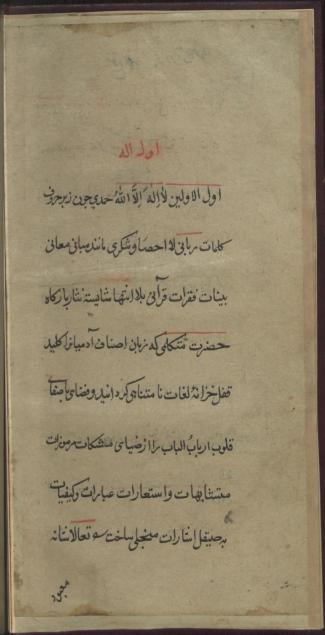 اول اله
اول الاولین لا اله الا الله حمدی چون زبر حروف
کلمات ربانی لا احصا و شکری مانند مبانی معانی
بینات فقرات قرآنی بلا انتها شایسته نثار بارکاه
حضرت متکلمی که زبان اصناف آدمیانرا کلید
قفل خزانهٔ لغات نامتناهی کردانید و فضای با صفای
قلوب ارباب الباب را از ضیای مشکات مرموزات
متشابهات و استعارات عبارات و کیفیات
بصیقل اشارات منجلی ساخت تعالا شانه